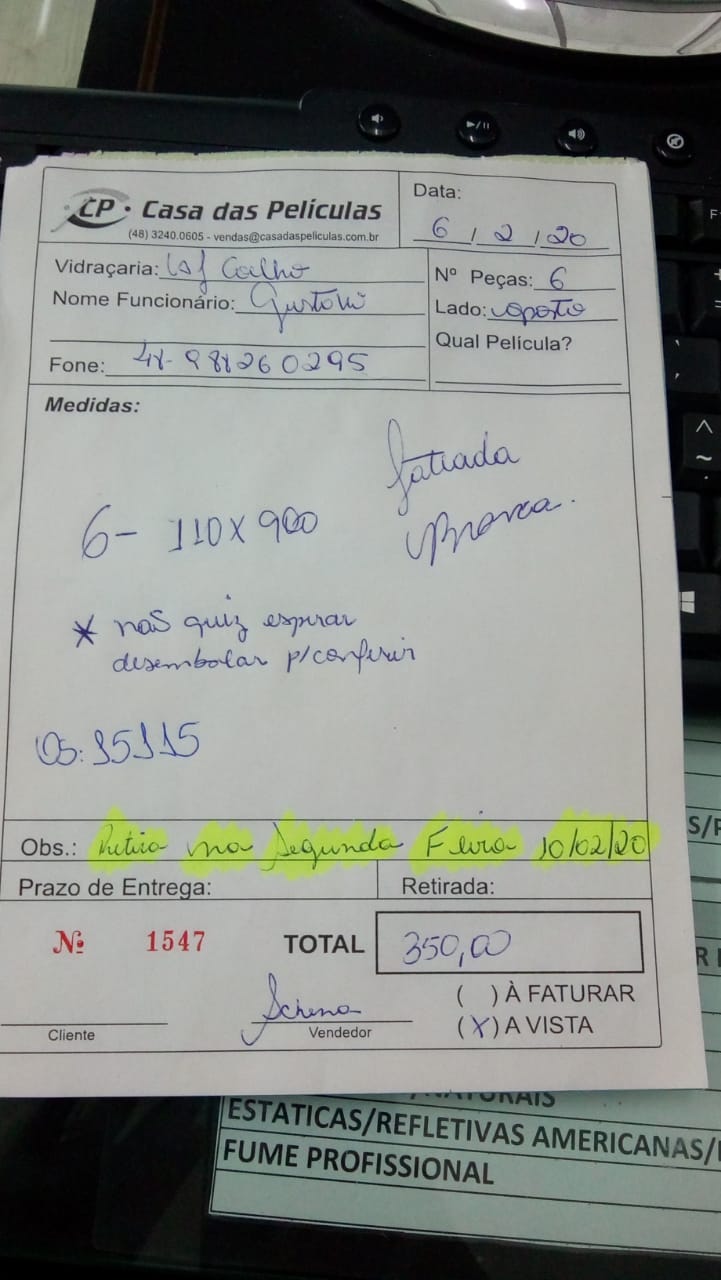 CP • Casa das Películas
(48) 3240.0605 - vendas@casadaspeliculas.com.br
Data:
6 / 2 / 20
Vidraçaria: Coelho
Nome Funcionário:
Fone: 48-988260295
Nº Peças: 6
Lado: oposto
Qual Película?
Medidas:
6- 110 x 900
fatiada
Branca.
* nas quiz esperar
desembolar p/conferir
OS: 15115
Obs.: Retira na Segunda Feira 10/02/20
Prazo de Entrega:
Retirada:
Nº 1547
TOTAL 350,00
Cliente
Vendedor
( ) À FATURAR
(X) A VISTA
ESTATICAS/REFLETIVAS AMERICANAS/
FUME PROFISSIONAL